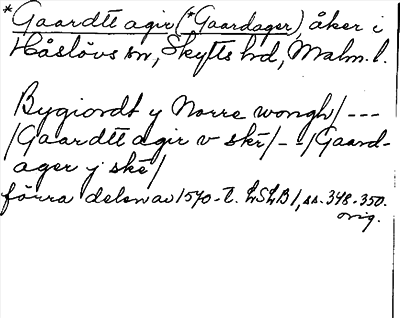 *Gaardtt agir (*Gaardager), åker i
Håslövs sn, Skytts hd, Malm. l.
Bygiordt y Norre wongh/ ---
/Gaardtt agir v skē/ - - /Gaard-
ager y skē/
förra delen av 1570-t. LSLB 1, ss. 348-350.
orig.